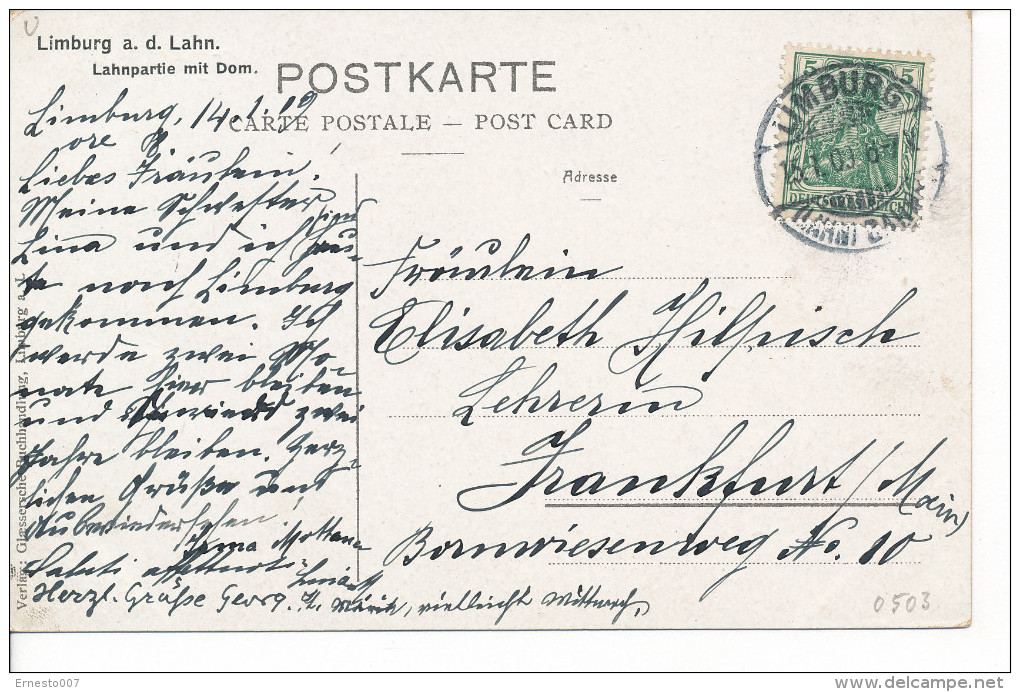 Limburg a. d. Lahn.
Lahnpartie mit Dom.
POSTKARTE
CARTE POSTALE — POST CARD
Adresse
5 5
LIMBURG
DEUTSCHES REICH
(LAHN)
Limburg, 14. 1. 09
Liebes Fräulein!
Meine Schwester
Lina und ich sind heu-
te nach Limburg
gekommen. Ich
werde zwei Mo-
nate hier bleiben
und zwei
Jahre bleiben. Herz-
lichen Grüße und
Aufwiedersehen!
Saluti
Herzl. Grüße Georg.
vielleicht Mittwoch.
Fräulein
Elisabeth Hilfrisch
Lehrerin
Frankfurt / (Main)
Bornwiesenweg No. 10
0503
Verlag: Glaessersche Buchhandlung, Limburg a. L.
Ernesto007
delcampe.net